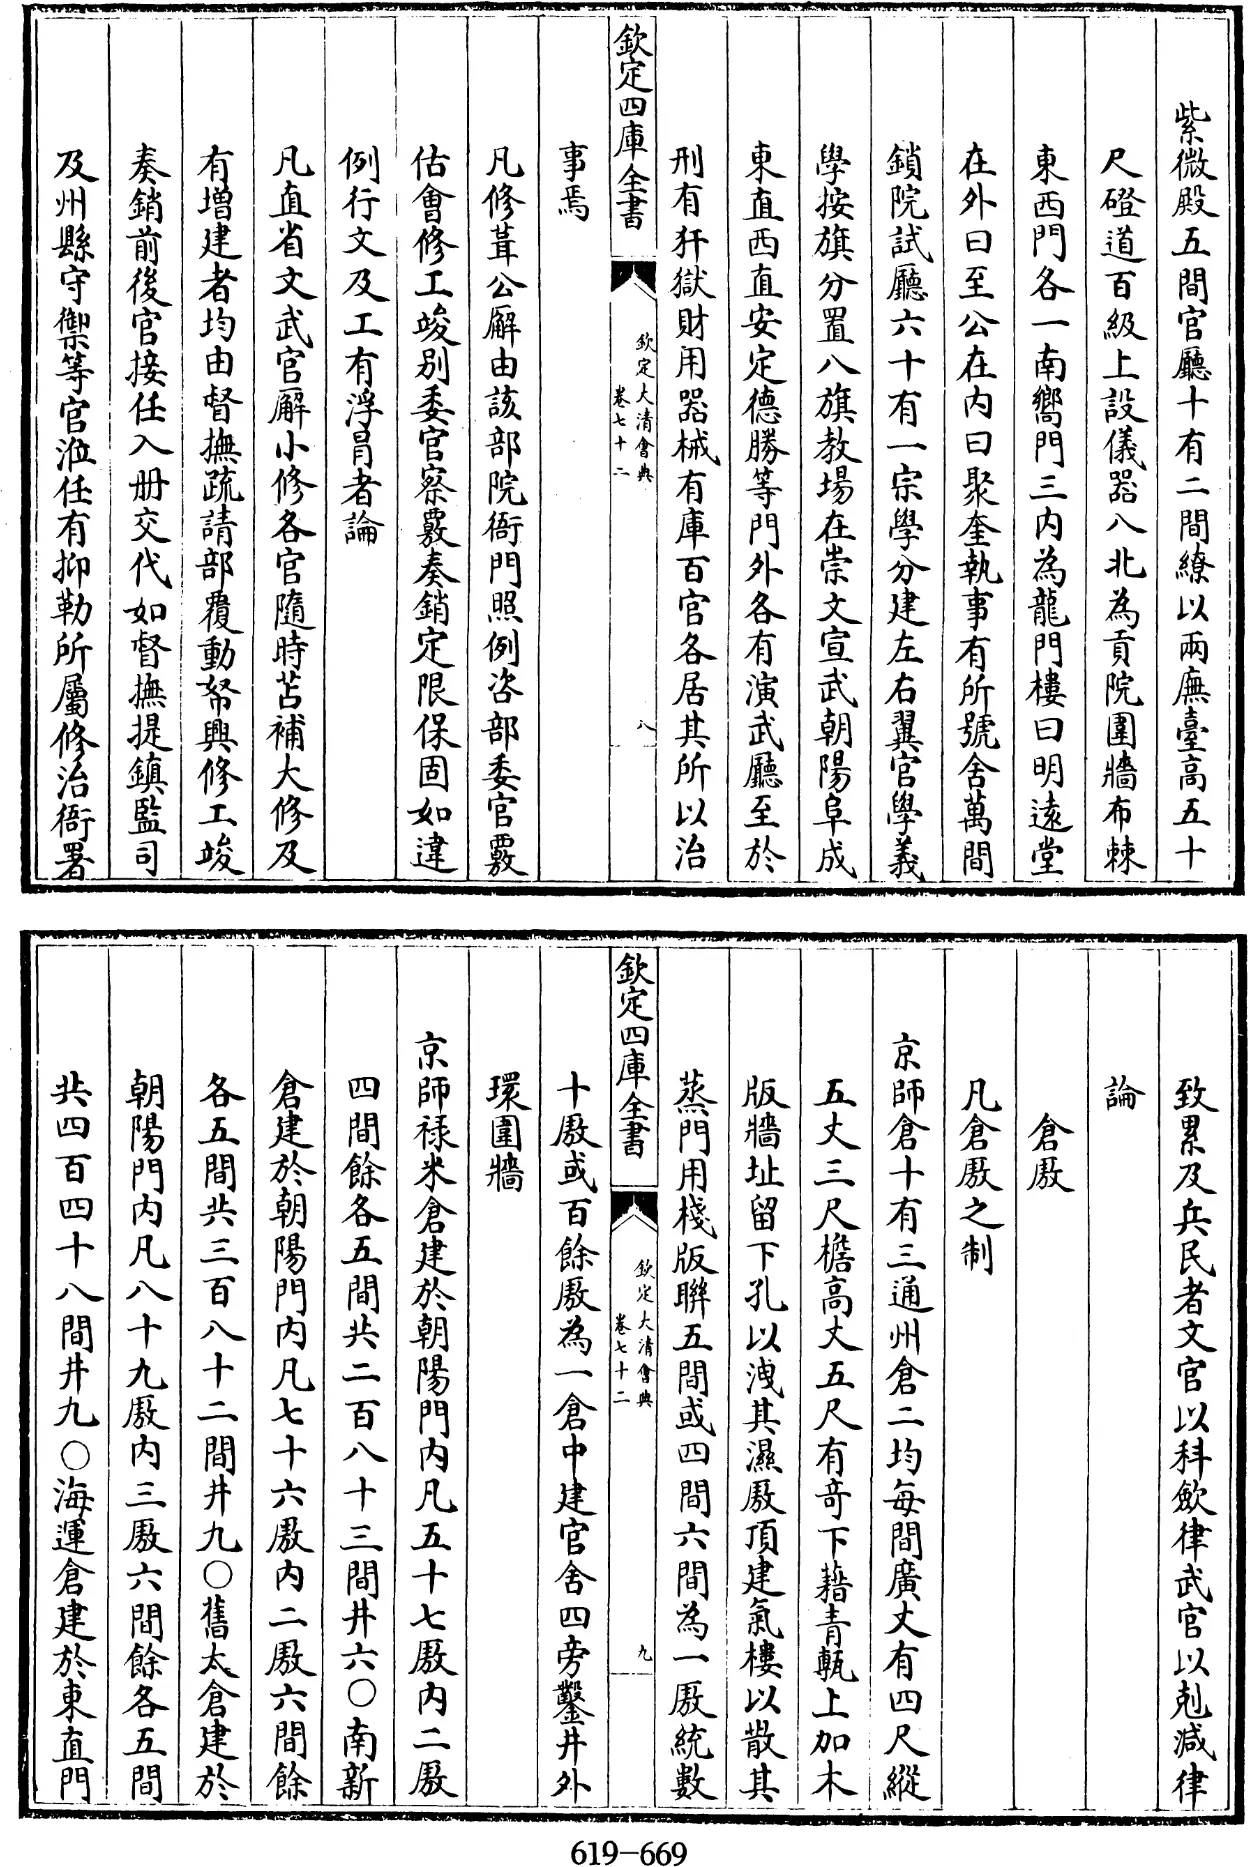 紫微殿五間官廳十有二間繚以兩廡臺高五十
尺磴道百級上設儀器八北為貢院圍牆布棘
東西門各一南嚮門三内為龍門樓曰明遠堂
在外曰至公在内曰聚奎執事有所號舍萬間
鎖院試廳六十有一宗學分建左右翼官學義
學按旗分置八旗教場在崇文宣武朝陽阜成
東直西直安定德勝等門外各有演武廳至於
刑有犴獄財用器械有庫百官各居其所以治
欽定四庫全書
欽定大清會典
卷七十二
八
事焉
凡修葺公廨由該部院衙門照例咨部委官覈
估會修工竣别委官察覈奏銷定限保固如違
例行文及工有浮冐者論
凡直省文武官廨小修各官隨時苫補大修及
有增建者均由督撫疏請部覆動帑興修工竣
奏銷前後官接任入册交代如督撫提鎮監司
及州縣守禦等官涖任有抑勒所屬修治衙署
致累及兵民者文官以科斂律武官以剋減律
論
倉厫
凡倉厫之制
京師倉十有三通州倉二均每間廣丈有四尺縱
五丈三尺檐高丈五尺有奇下藉青甎上加木
版牆址留下孔以洩其濕厫頂建氣樓以散其
蒸門用棧版聯五間或四間六間為一厫統數
欽定四庫全書
欽定大清會典
卷七十二
九
十厫或百餘厫為一倉中建官舍四旁鑿井外
環圍牆
京師禄米倉建於朝陽門内凡五十七厫内二厫
四間餘各五間共二百八十三間井六○南新
倉建於朝陽門内凡七十六厫内二厫六間餘
各五間共三百八十二間井九○舊太倉建於
朝陽門内凡八十九厫内三厫六間餘各五間
共四百四十八間井九○海運倉建於東直門
619-669